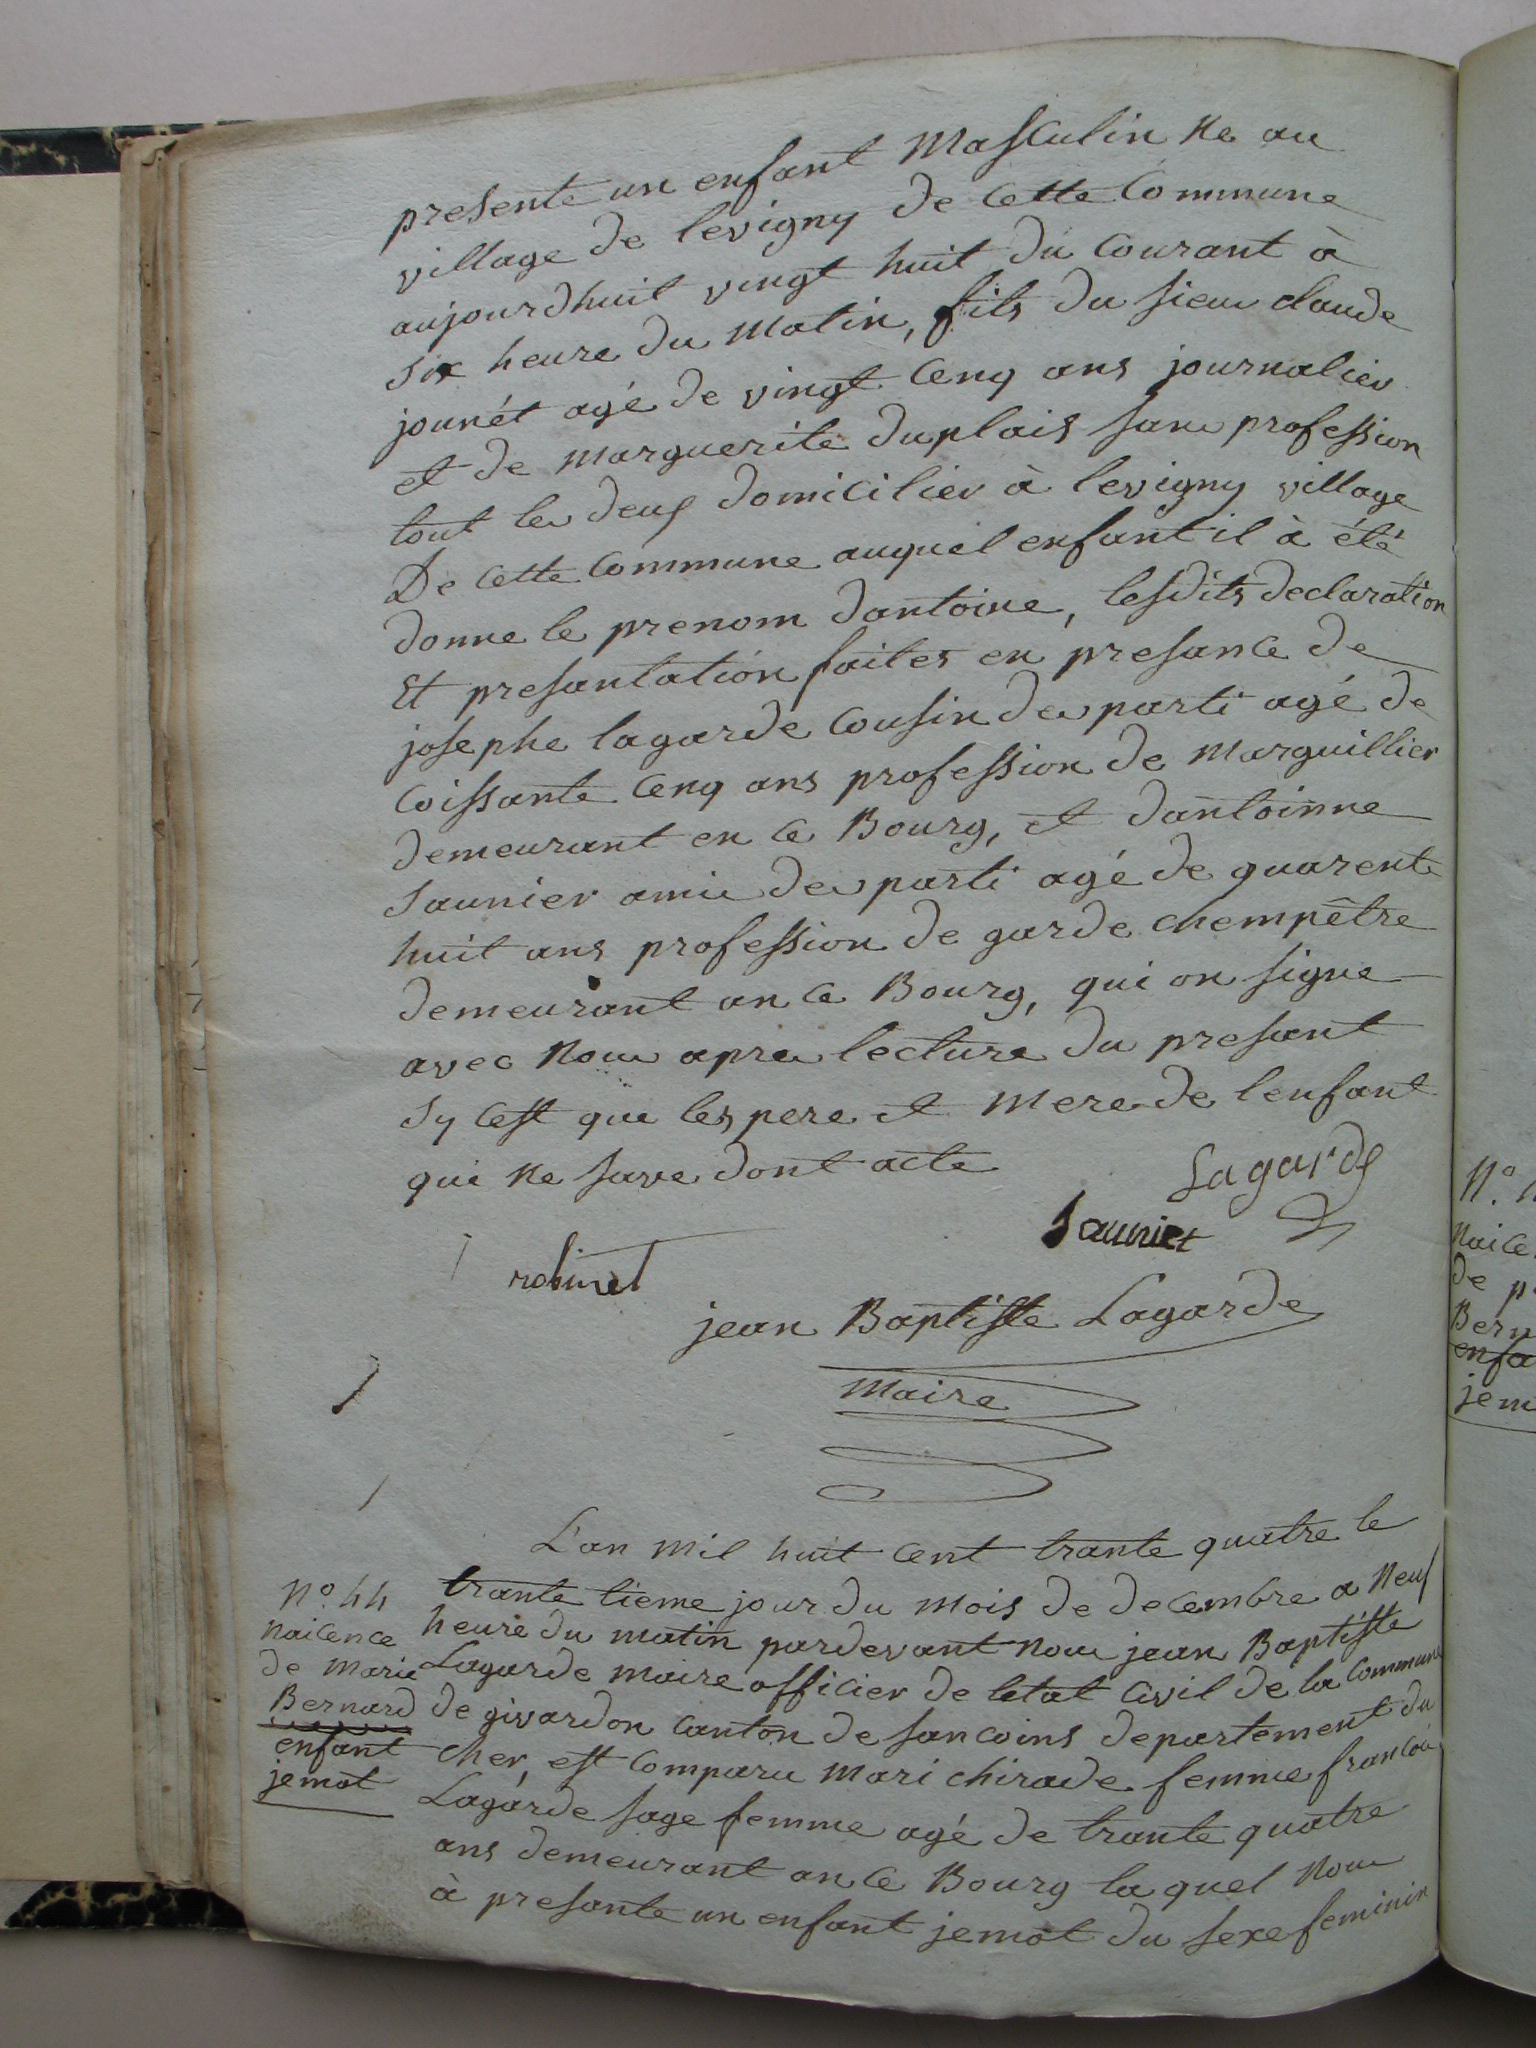 presente un enfant Masculin Ne au
village de levigny de Cette Commune
aujourdhuit vingt huit du Courant à
six heure du Matin, fils du sieur claude
jounét agé de vingt Cenq ans journalier
et de marguerite duplais sans profession
tout les deux domicilier à levigny village
De Cette Commune auquel enfant il à été
donne le prenom dantoine, lesdits declaration
Et presantation faites en presance de
josephe lagarde Cousin des parti agé de
Coissante Cenq ans profession de Marguillier
demeurant en Ce Bourg, et dantoinne
Saunier amie des parti agé de quarente
huit ans profession de garde chempêtre
demeurant an Ce Bourg, qui on signe
avec Nous apres lecture du presant
Sy Cest que les pere et Mere de lenfant
qui Ne save dont acte
Lagarde
Saunier
robinet
jean Baptiste Lagarde
Maire
L'an Mil huit Cent trante quatre le
trante tieme jour du Mois de decembre a Neuf
heure du matin pardevant Nous jean Baptiste
Lagarde Maire officier de letat Civil de la Commune
de givardon Canton de sancoins departement du
Cher, est Comparu Mari chirade femme francois
Lagarde sage femme agé de trante quatre
ans demeurant an Ce Bourg laquel Nous
à presante un enfant jemot du sexe feminin
No. 44
Naicence
de Marie
Bernard
enfant
jemot
No.
Naice
de p
Bern
enfa
jem